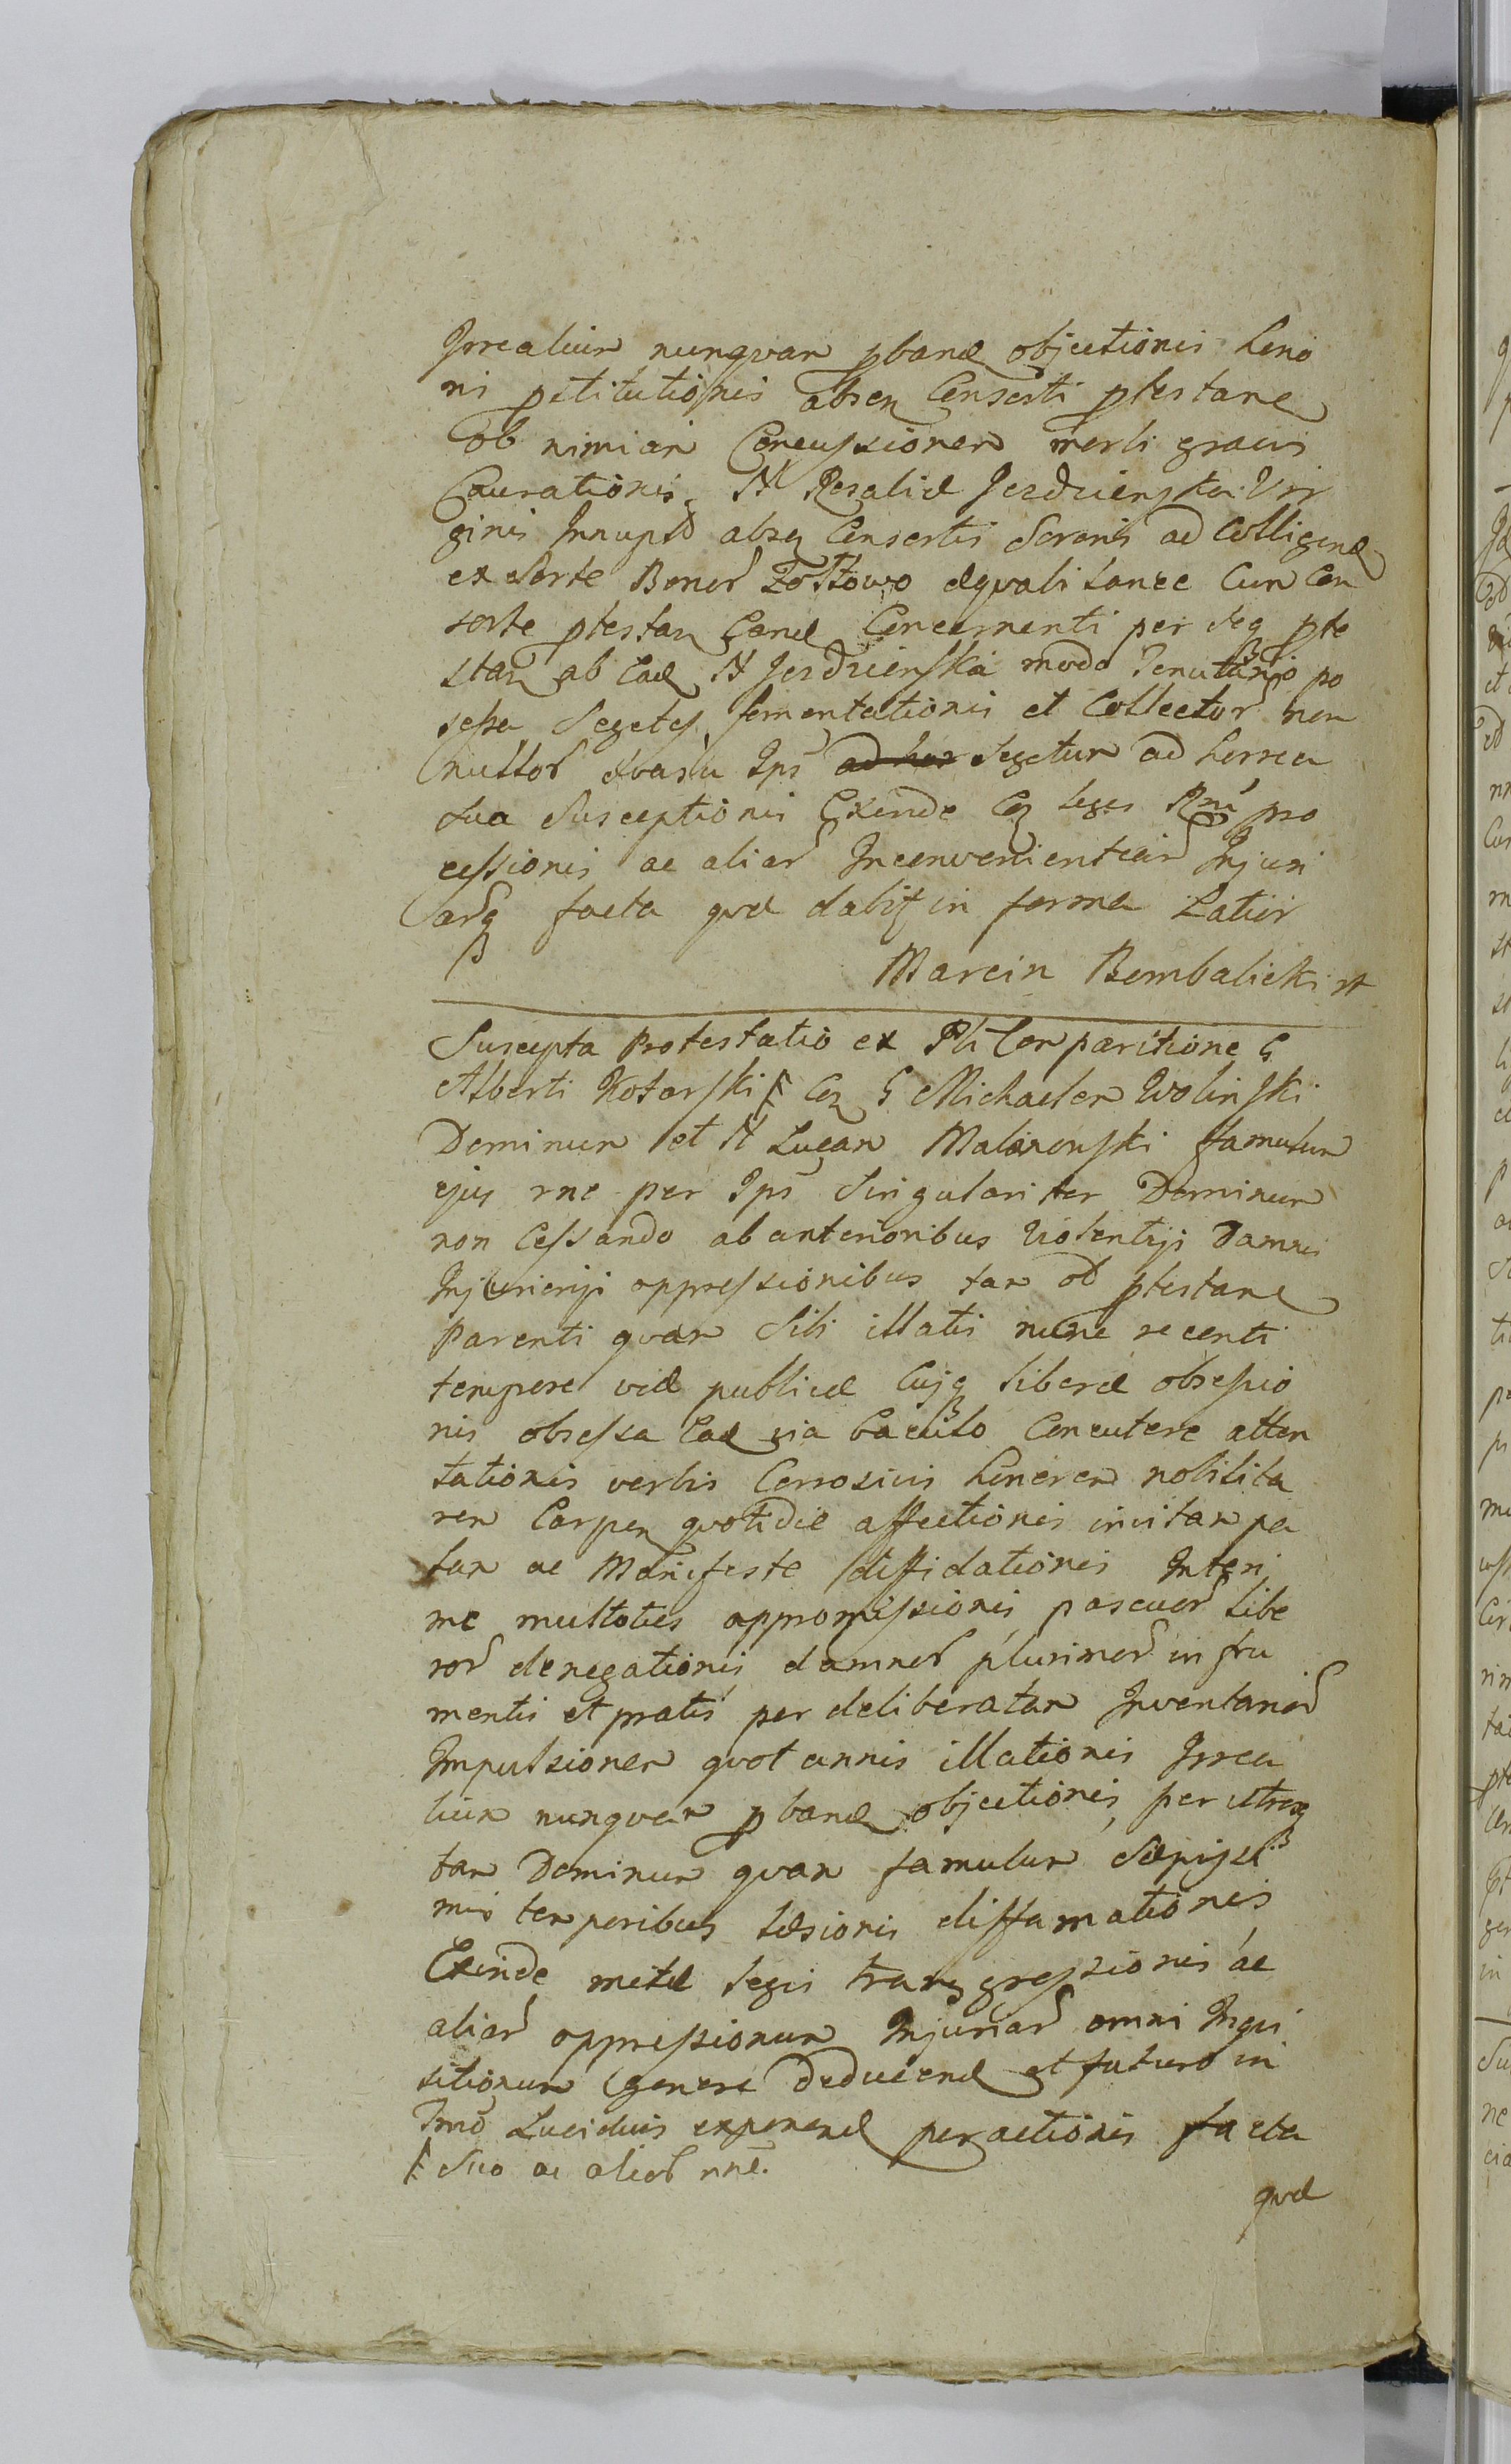 Irrealium nunqvam pband objectionis Leno
ni pstitutionis absen Consorti ptestane
ob nimiam Concussionem morbi gravis
Caurationis. N Rosaliæ Jezdzienska Vir
ginis Innuptæ absq Consortis Sororis ad Colligend
ex Sorte Bonor Zołtowo æqvali Lance Cum Con
sorte ptestan Cond Concernenti per seq pte
stan ab Ead N Jezdzienska modo Tenutario po
sessa Segetes sementationis et Collector non
nullor evasu Ips ad hor Segetum ad horrea
sua Susceptionis Exinde Co Leges Rni pro
cessionis ac aliar Inconvenientiar Injuri
arq facta qvæ dabit in forma Latiori
Marcin Bembalicki m
Suscepta Protestatio ex Pli Comparitione G
Alberti Kotarski Con G Michaelem Wolinski
Dominum et N Lucam Malinowski famulum
ejus rne per Ips Singulariter Dominum
non Cessando ab anterioribus Violentijs Damnis
Injurienijs oppressionibus tam ob ptestane
Parenti qvam Sibi illatis nunc recenti
tempore viæ publicæ Cujq liberæ obsessio
nis obsessa Ead via baculo Concutere atten
tationis verbis Corrosivis honorem nobilita
rem Carpen qvotidie affectionis invitam pa
lam ac Manifeste diffidationis Interi
me multoties appromissionis pascuor Libe
ror denegationis damnor plurimor in fru
mentis et pratis per deliberatam Inventarior
Impulsionem qvot annis illationis Irrea
lium nunqvam pband objectionis per utrosq
tam Dominum qvam famulum Sæpissi
mis temporibus læsionis diffamationis
Exinde metæ legis transgressionis ac
aliar oppressionum Injuriar omni Inqui
sitionum Genere Deducend et futuro in
Tmo Lucidius exponend peractionis facta
Suo ac alior nne.
qvæ